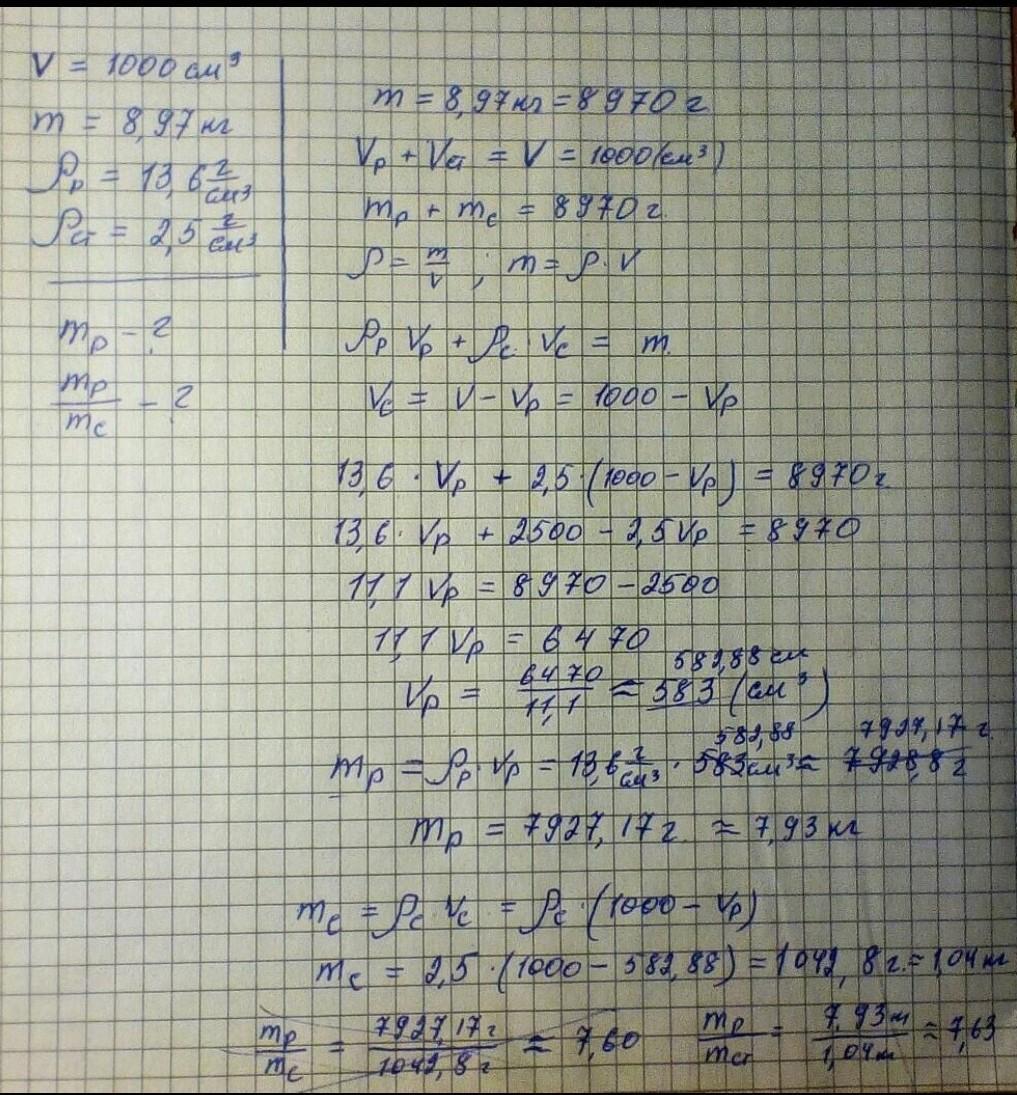 V = 1000 см³
m = 8,97 кг
ρр = 13,6 г/см³
ρст = 2,5 г/см³
mр - ?
mр/mс - ?
m = 8,97 кг = 8970 г
Vр + Vст = V = 1000 (см³)
mр + mс = 8970 г.
ρ = m/v ; m = ρ · V
ρр Vр + ρс · Vс = m.
Vс = V - Vр = 1000 - Vр
13,6 · Vр + 2,5 · (1000 - Vр) = 8970 г.
13,6 · Vр + 2500 - 2,5 Vр = 8970
11,1 Vр = 8970 - 2500
11,1 Vр = 6470
582,88 см
Vр = 6470/11,1 ≈ 583 (см³)
582,88 7927,17 г.
mр = ρр · Vр = 13,6 г/см³ · 583 см³ ≈ 7928,8 г
mр = 7927,17 г. ≈ 7,93 кг
mс = ρс · Vс = ρс · (1000 - Vр)
mс = 2,5 · (1000 - 582,88) = 1042,8 г. = 1,04 кг
mр/mс = 7927,17 г/1042,8 г ≈ 7,60 mр/mст = 7,93 кг/1,04 кг ≈ 7,63